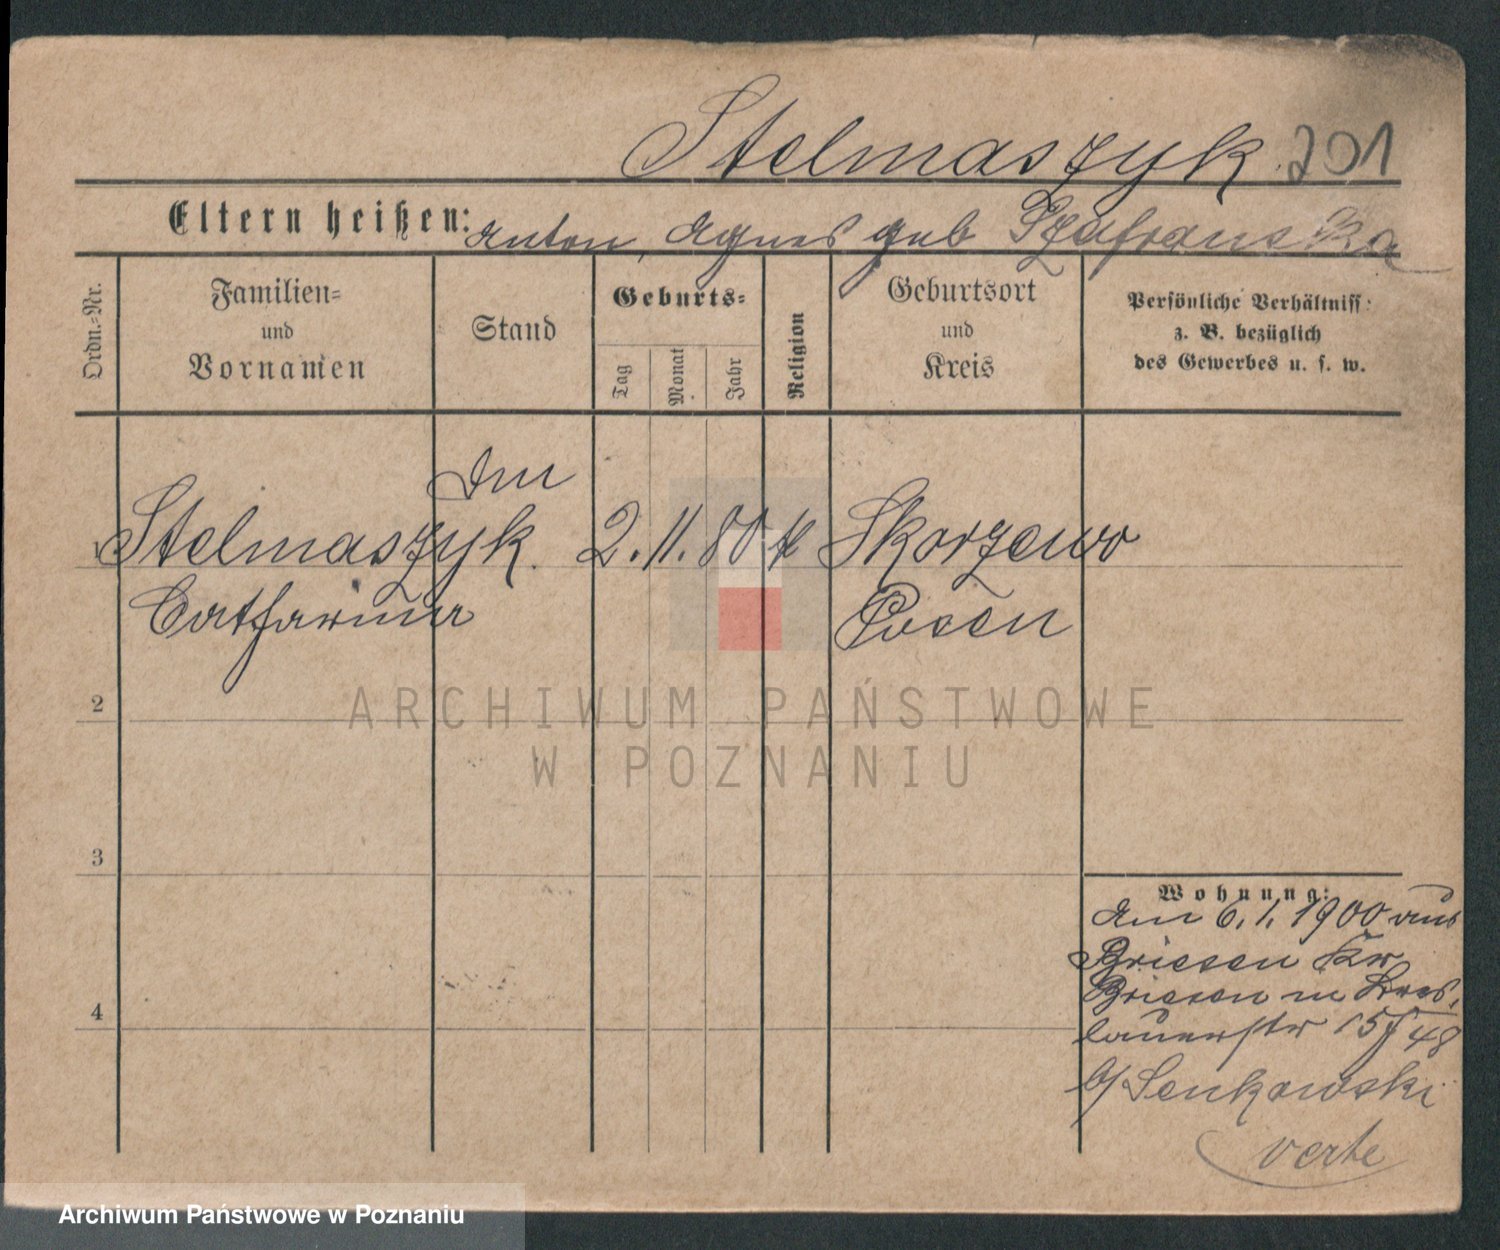 Stelmaszyk. 201
Eltern heißen: Anton, Agnes geb Szafranska
Ordn.-Nr.
Familien-
und
Vornamen
Stand
Geburts-
Tag
Monat
Jahr
Religion
Geburtsort
und
Kreis
Persönliche Verhältniss
z. B. bezüglich
des Gewerbes u. s. w.
1 Stelmaszyk. 2. 11. 80 k Skorzewo
Catharina Posen
2
3
4
Wohnung:
Am 6. 1. 1900 aus
Briesen Kr
Briesen n Bres,
lauerstr 15/
b/ Senkowski
verte
ARCHIWUM PAŃSTWOWE
W POZNANIU
Archiwum Państwowe w Poznaniu